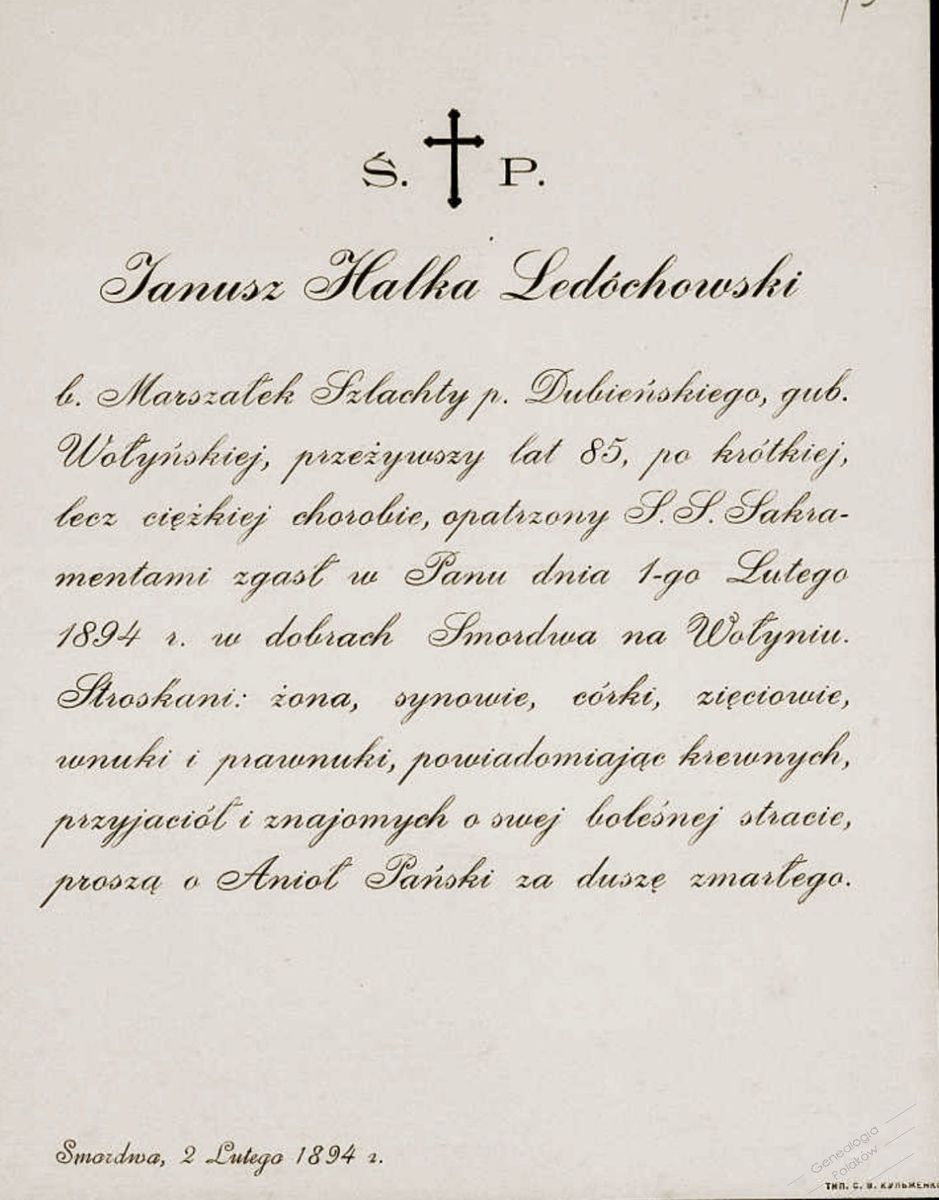 Ś. P.
Janusz Halka Ledóchowski
b. Marszałek Szlachty p. Dubieńskiego, gub.
Wołyńskiej, przeżywszy lat 85, po krótkiej,
lecz ciężkiej chorobie, opatrzony S. S. Sakra-
mentami zgasł w Panu dnia 1-go Lutego
1894 r. w dobrach Smordwa na Wołyniu.
Stroskani: żona, synowie, córki, zięciowie,
wnuki i prawnuki, powiadomiając krewnych,
przyjaciół i znajomych o swej boleśnej stracie,
proszą o Anioł Pański za duszę zmarłego.
Smordwa, 2 Lutego 1894 r.
Genealogia
Polaków
ТИП. С. В. КУЛЬЖЕНКО